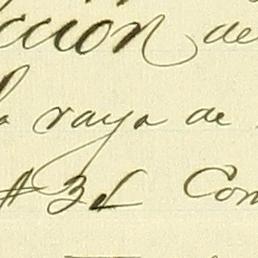 ccion de
la raya de
# 3
Con